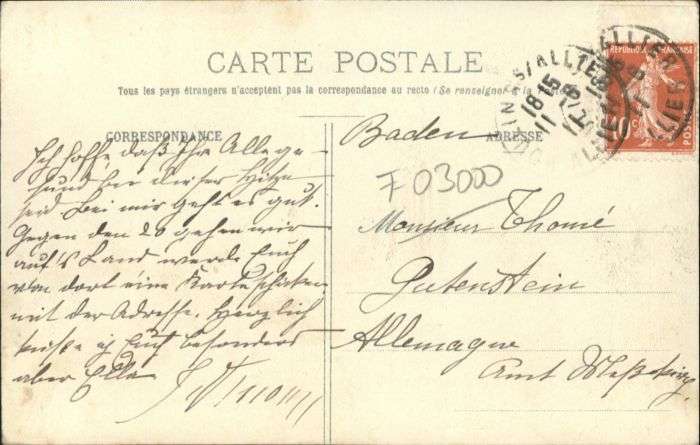 CARTE POSTALE
Tous les pays étrangers n'acceptent pas la correspondance au recto (Se renseigner à la Poste)
CORRESPONDANCE
ADRESSE
Ich hoffe daß Ihr Alle ge-
sund bei dieser Hitze
seid. Bei mir geht es gut.
Gegen den 20 gehen wir
auf's Land werde Euch
von dort eine Karte schicken
mit der Adresse. Herzlich
küße ich Euch besonders
aber Ella
Baden
F 03000
Monsieur Thomé
Gutenstein
Allemagne
Amt Meßkirch
REPUBLIQUE FRANÇAISE
10c
ALLIER
18 15
11